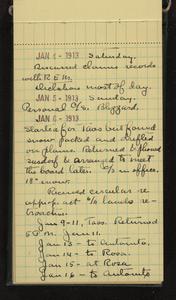 JAN 4 - 1913 Saturday.
Discussed claims records
with R.E.M.
Dictation most of day.
JAN 5 - 1913 Sunday.
Personal O/S. Blizzard.
JAN 6 - 1913
Started for Taos but found
snow packed and drifted
on plains. Returned & phoned
& arranged to meet
the board later. in office.
18" snow.
Received circular re
approp. act lands re-
Jan 9-11, Taos. Returned
5 P.M. Jan 11.
Jan 13 - to Antonito.
Jan 14 - to Rosa.
Jan 15 - at Rosa.
Jan 16 - to Antonito